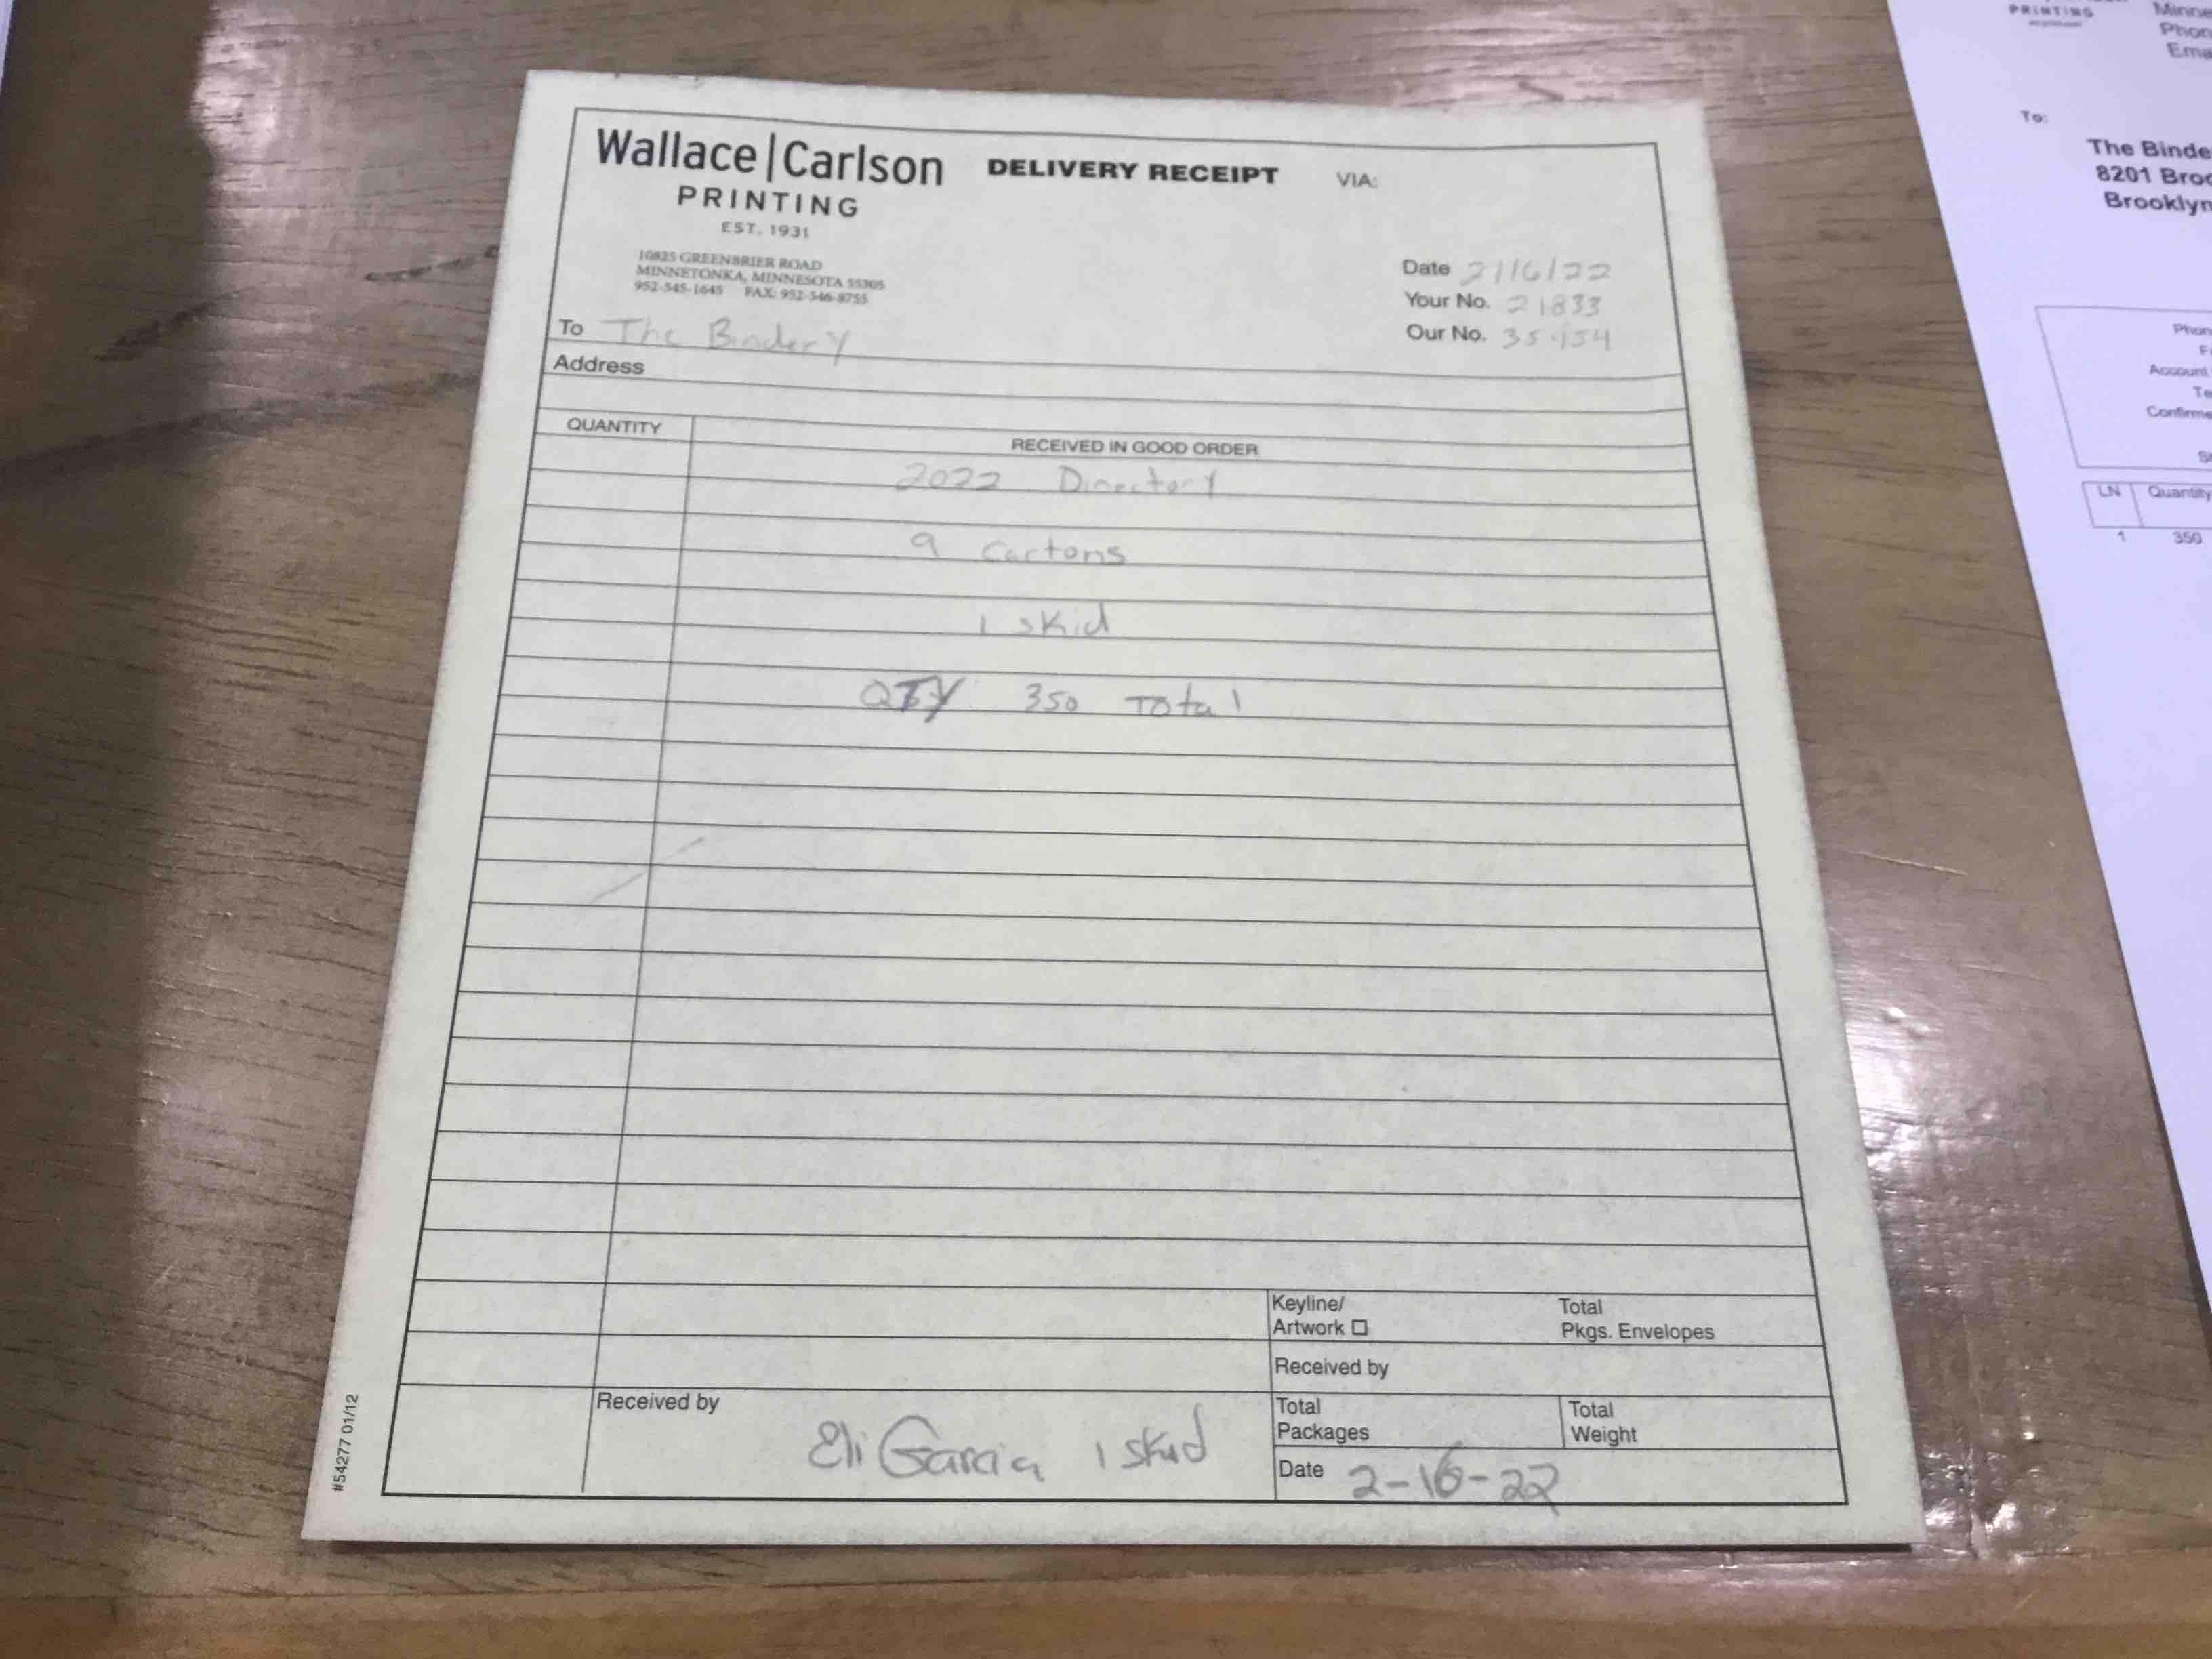 Wallace|Carlson
PRINTING
EST. 1931
10825 GREENBRIER ROAD
MINNETONKA, MINNESOTA 55305
952-545-1645 FAX: 952-546-8755
DELIVERY RECEIPT VIA:
Date 2/16/22
Your No. 21833
Our No.
To The Bindery
Address
QUANTITY
RECEIVED IN GOOD ORDER
2022 Directory
9 Cartons
1 skid
QTY 350 Total
Keyline/
Artwork ☐
Total
Pkgs. Envelopes
Received by
Received by Eli Garcia 1 skid
Total
Packages
Total
Weight
Date 2-16-22
#54277 01/12
PRINTING
To:
The Binde
8201 Broo
Brooklyn
Minne
Phon
Ema
Phon
F
Account
Te
Confirme
LN Quantity
1 350